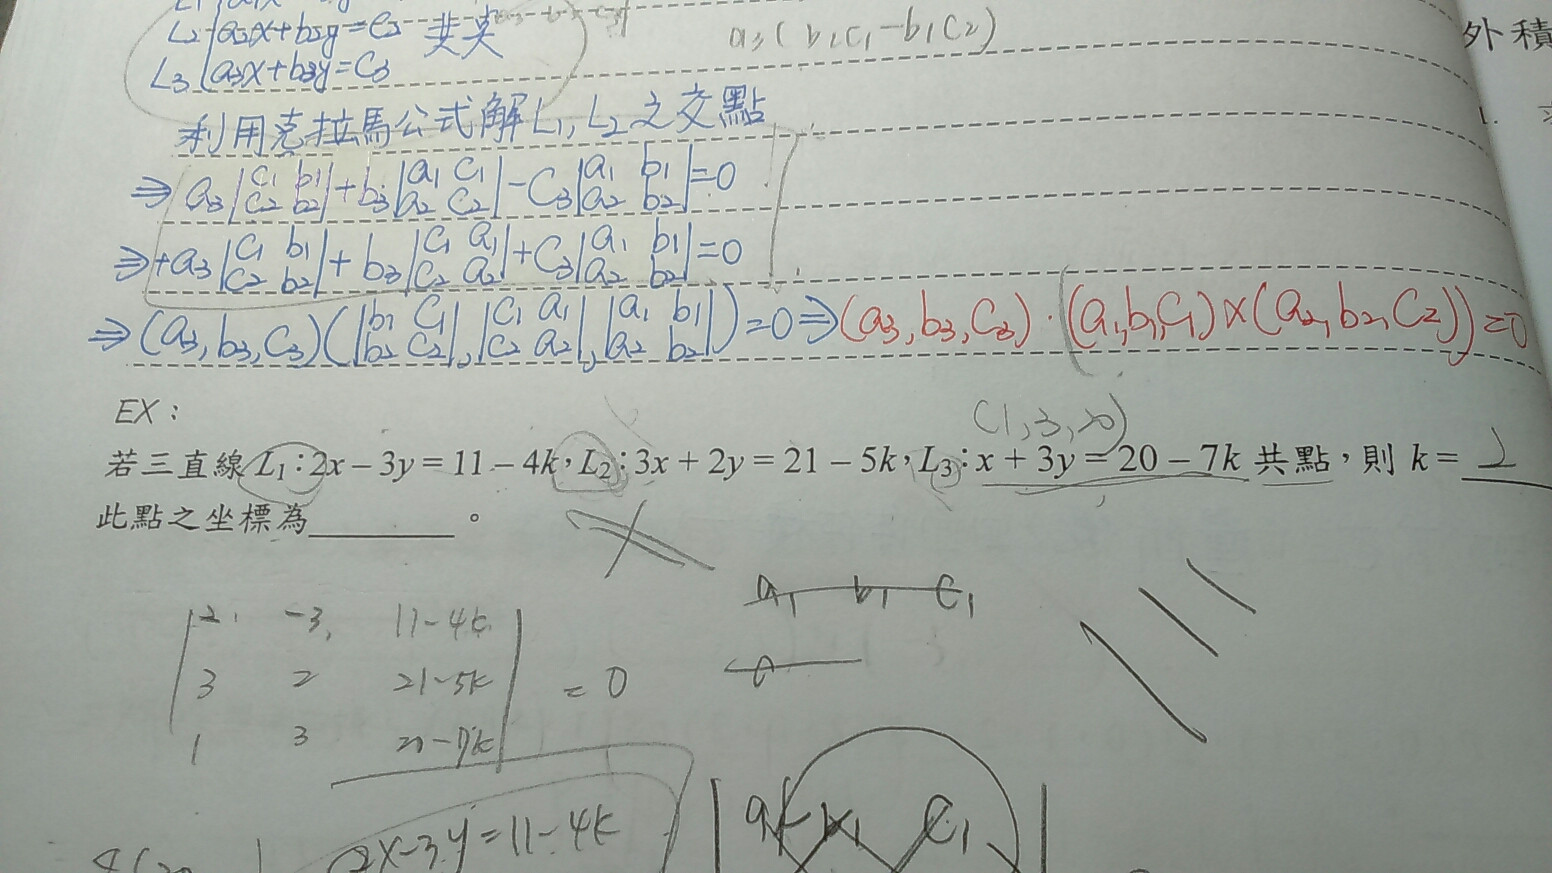 L2 a2x+b2y=C2 共奌
a3(b2c1-b1c2)
外積
L3 a3x+b3y=C3
利用克拉馬公式解L1, L2之交點
⇒ a3|c1 b1; c2 b2|+b3|a1 c1; a2 c2|-C3|a1 b1; a2 b2|=0
⇒+a3|c1 b1; c2 b2|+b3|c1 a1; c2 a2|+C3|a1 b1; a2 b2|=0
⇒(a3,b3,c3)(|b1 c1; b2 c2|,|c1 a1; c2 a2|,|a1 b1; a2 b2|)=0⇒(a3,b3,C3)·((a1,b1,c1)×(a2,b2,C2))=0
EX：
若三直線L1：2x-3y=11-4k，L2：3x+2y=21-5k，L3：x+3y=20-7k 共點，則 k= 2
此點之坐標為________。
a1 b1 c1
2 -3 11-4k
3 2 21-5k = 0
1 3 20-7k
2x-3y=11-4k